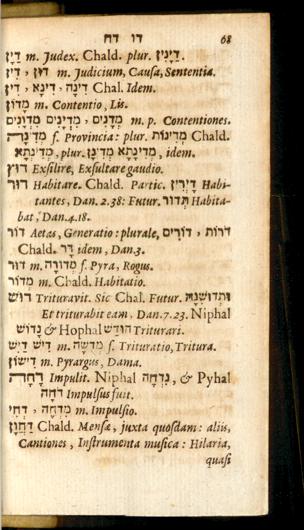 דו דח 68
דַּיָּן m. Judex. Chald. plur. דַּיָּנִין.
דּוּן, דִּין m. Judicium, Causa, Sententia.
דִּינָה, דִּינָא, דִּין Chal. Idem.
מָדוֹן m. Contentio, Lis.
מְדָנִים, מִדְיָנִים מְדוֹנִים m. p. Contentiones.
מְדִינָה f. Provincia: plur. מְדִינוֹת Chald.
מְדִינְתָּא, plur. מְדִינָן מְדִינָתָא, idem.
דּוּץ Exsilire, Exsultare gaudio.
דּוּר Habitare. Chald. Partic. דָּיְרִין Habi-
tantes, Dan. 2. 38: Futur. תְּדוּר Habita-
bat, Dan. 4. 18.
דּוֹר Aetas, Generatio: plurale, דּוֹרִים, דּוֹרוֹת
Chald. דָּר idem, Dan. 3.
דּוּר m. מְדוּרָה f. Pyra, Rogus.
מְדוֹר m. Chald. Habitatio.
דּוּשׁ Trituravit. Sic Chal. Futur. וּתְדוּשִׁנַּהּ
Et triturabit eam, Dan. 7. 23. Niphal
נָדוֹשׁ & Hophal הוּדַּשׁ Triturari.
דִּישׁ דַּיִשׁ m. מְדֻשָׁה f. Trituratio, Tritura.
דִּישׁוֹן m. Pyrargus, Dama.
דָּחָה Impulit. Niphal נִדְחָה, & Pyhal
דֹּחָה Impulsus fuit.
דְּחִי, מִדְחֶה m. Impulsio.
דַּחֲוָן Chald. Mensae, juxta quosdam: aliis,
Cantiones, Instrumenta musica: Hilaria,
quasi